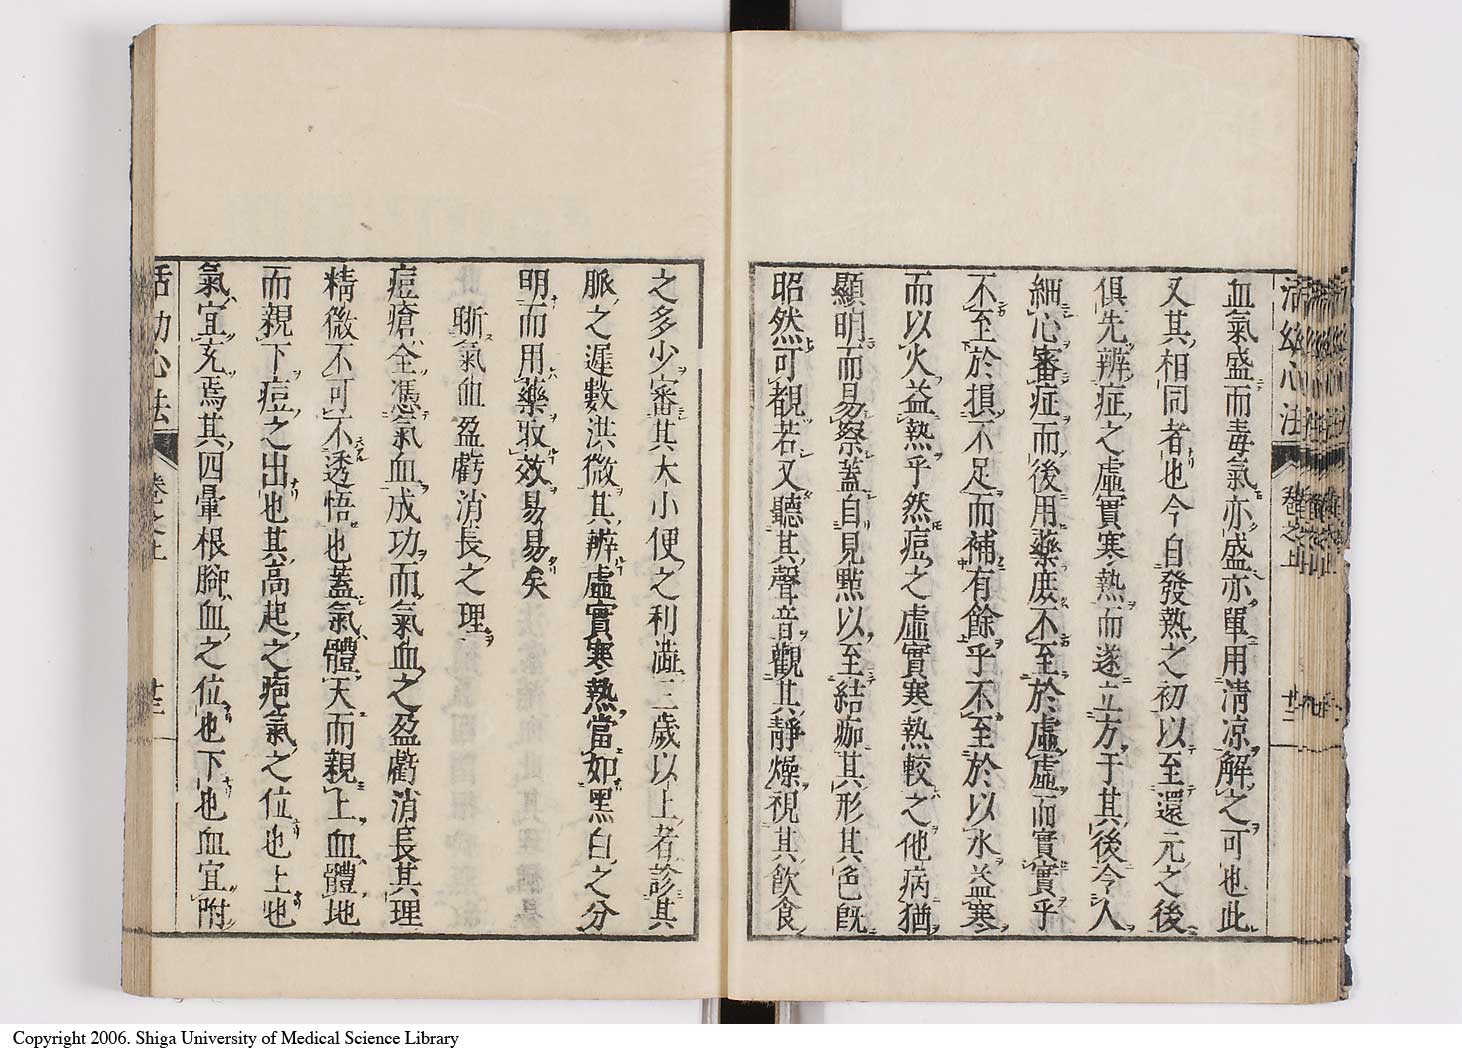 活幼心法
卷之上
廿二
血氣盛而毒氣亦盛亦單用淸凉解之可也此
又其相同者也今自發熱之初以至還元之後
俱先辨症之虛實寒熱而遂立方于其後令人
細心審症而後用藥庶不至於虛虛而實實乎
不至於損不足而補有餘乎不至於以水益寒
而以火益熱乎然痘之虛實寒熱較之他病猶
顯明而易察蓋自見㸃以至結痂其形其色旣
昭然可覩若又聽其聲音觀其靜燥視其飮食
之多少審其大小便之利澁三歲以上者診其
脈之遲數洪微其辨虛實寒熱當如黑白之分
明而用藥取效易易矣
斷氣血盈虧消長之理
痘瘡全憑氣血成功而氣血之盈虧消長其理
精微不可不透悟也蓋氣體天而親上血體地
而親下痘之出也其高起之疱氣之位也上也
氣宜充焉其四暈根腳血之位也下也血宜附
活幼心法
卷之上
廿三
Copyright 2006. Shiga University of Medical Science Library